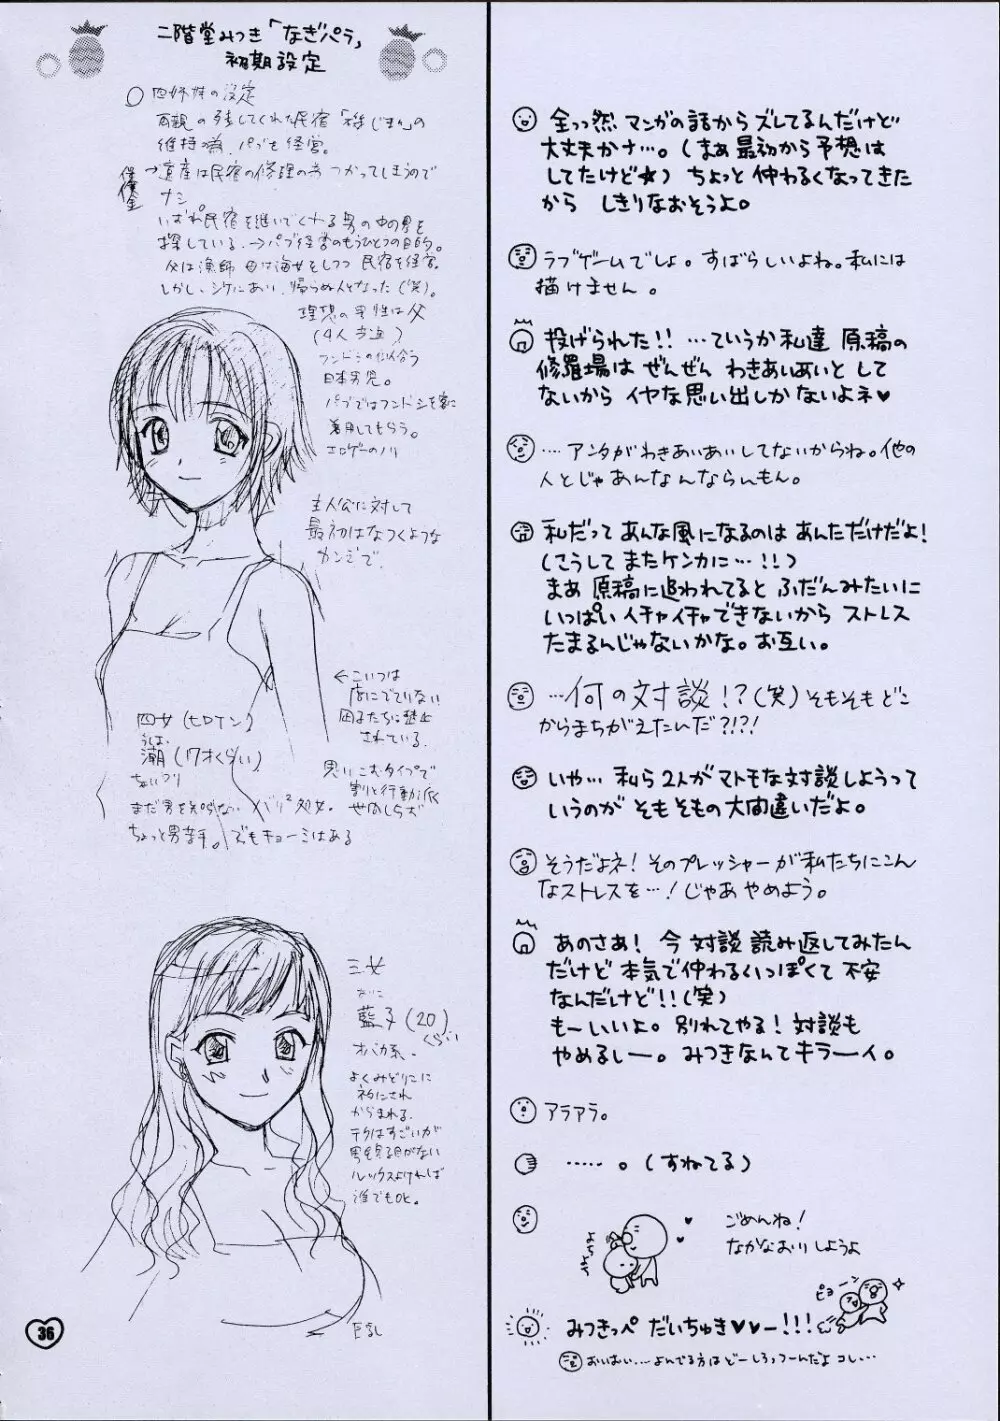 二階堂みつき「なぎパラ」
初期設定
四姉妹の設定
両親の残してくれた民宿「
維持の為、パブも経営。
→遺産は民宿の修理の為つかってしまうので
ナシ。
いずれ民宿を継いでくれる男の中の男を
探している。→パブ経営のもうひとつの目的。
父は漁師 母は海女をしつつ 民宿を経営。
しかし、シケにあい、帰らぬ人となった(笑)。
理想の男性は父
(4人共通)
フンドシの似合う
日本男児。
パブではフンドシを客に
着用してもらう。
エロゲーのノリ
主人公に対して
最初はなつくような
カンジで。
←こいつは
店にでていない
姉たちに禁止
されている。
四女(ヒロイン)
うしお
潮(
まだ男を知らない バリ2処女。
ちょっと男苦手。でもキョーミはある
思いこむタイプで
割と行動派
世間しらず
三女
あいこ
藍子(20)
くらい
オバカ系。
よくみどりこに
ネタにされ
からまれる。
テクはすごいが
男を見る目がない
ルックスよければ
誰でもOK。
巨乳
36
全っ然 マンガの話から ズレてるんだけど
大丈夫かナ…。(まぁ最初から予想は
してたけど★) ちょっと仲わるくなってきた
から しきりなおそうよ。
ラブゲームでしょ。すばらしいよね。私には
描けません。
投げられた!! …ていうか私達 原稿の
修羅場は ぜんぜん わきあいあいと して
ないから イヤな思い出しかないよネ♥
‥‥アンタがわきあいあいしてないからね。他の
人とじゃあんなんならんもん。
私だって あんな風になるのは あんただけだよ!
(こうして またケンカに…!!)
まぁ 原稿に追われてると ふだんみたいに
いっぱい イチャイチャできないから ストレス
たまるんじゃないかな。お互い。
…何の対談!?(笑) そもそも どこ
からまちがえたんだ?!?!
いや… 私ら 2人が マトモな対談しようって
いうのが そもそもの大間違いだよ。
そうだよネ! そのプレッシャーが 私たちにこん
なストレスを…! じゃあ やめよう。
あのさぁ! 今 対談 読み返してみたん
だけど 本気で仲わるいっぽくて 不安
なんだけど!!(笑)
もーいいよ。別れてやる! 対談も
やめるしー。みつきなんてキラーイ。
アラアラ。
……。(すねてる)
よしよし
ごめんね!
なかなおりしようよ
ピョーン
みつきっぺ だいちゅき♥♥ー!!!
おいおい…よんでる方はどーしろっつーんだよ コレ…